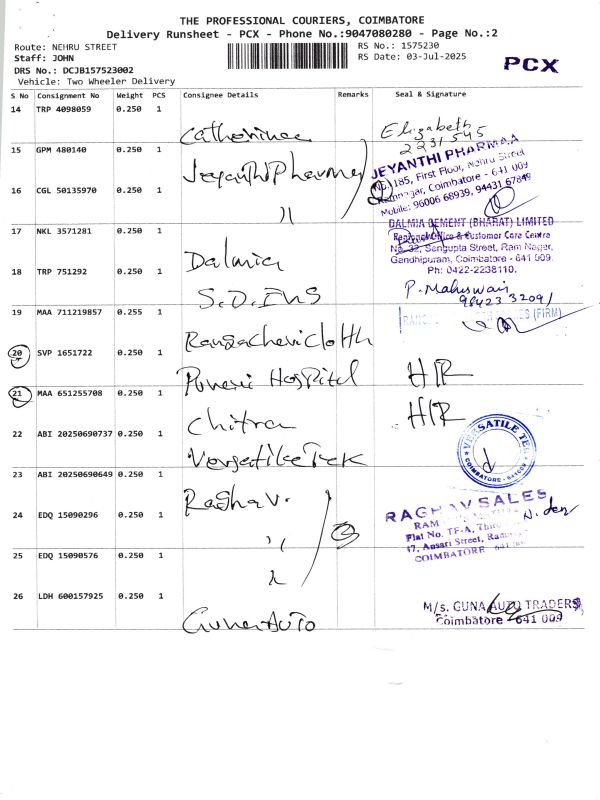 THE PROFESSIONAL COURIERS, COIMBATORE
Delivery Runsheet - PCX - Phone No.:9047080280 - Page No.:2
Route: NEHRU STREET
RS No.: 1575230
Staff: JOHN
RS Date: 03-Jul-2025
PCX
DRS No.: DCJB157523002
Vehicle: Two Wheeler Delivery
S No Consignment No Weight PCS Consignee Details Remarks Seal & Signature
14 TRP 4098059 0.250 1
Catherinea
Elizabeth
2231545
15 GPM 480140 0.250 1
Jeyanthi Pharmay
JEYANTHI PHARMAA
No. 185, First Floor, Nehru Street
Ramnagar, Coimbatore - 641 009
Mobile: 96006 68939, 94431 67849
16 CGL 50135970 0.250 1
〃
2
17 NKL 3571281 0.250 1
Dalmia
DALMIA CEMENT (BHARAT) LIMITED
Regional Office & Customer Care Centre
No. 32, Sengupta Street, Ram Nagar,
Gandhipuram, Coimbatore - 641 009.
Ph: 0422-2238110.
18 TRP 751292 0.250 1
S.D. Ens
P. Maheswari
98423 32091
19 MAA 711219857 0.255 1
Rangachari Cloth
(FIRM)
20 SVP 1651722 0.250 1
Hospital
H/R
21 MAA 651255708 0.250 1
Chitra
H/R
22 ABI 20250690737 0.250 1
Versatile Tek
VERSATILE TEK
COIMBATORE - 641009
23 ABI 20250690649 0.250 1
Raghav.
RAGHAV SALES
RAM
Flat No. TF-A, Third
17, Ansari Street, Ram
COIMBATORE - 641
24 EDQ 15090296 0.250 1
〃
3
25 EDQ 15090576 0.250 1
〃
26 LDH 600157925 0.250 1
Guna Auto
M/s. GUNA AUTO TRADERS
Coimbatore - 641 009